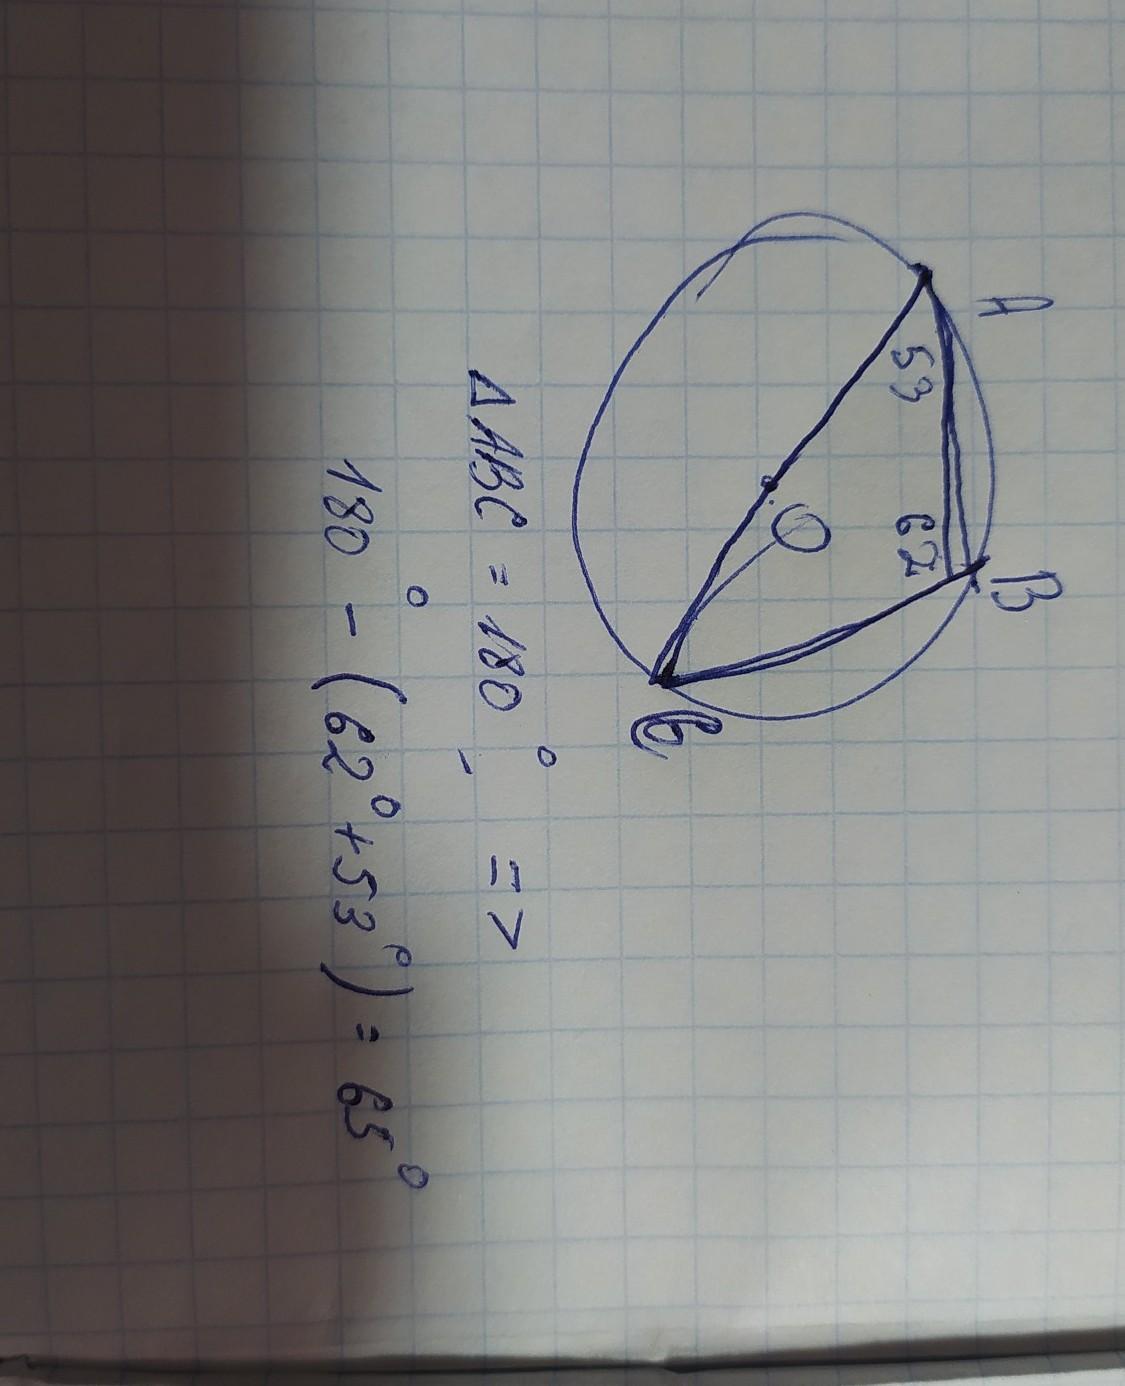 A
B
53
62
O
C
ΔABC = 180° =>
180° - (62°+53°) = 65°